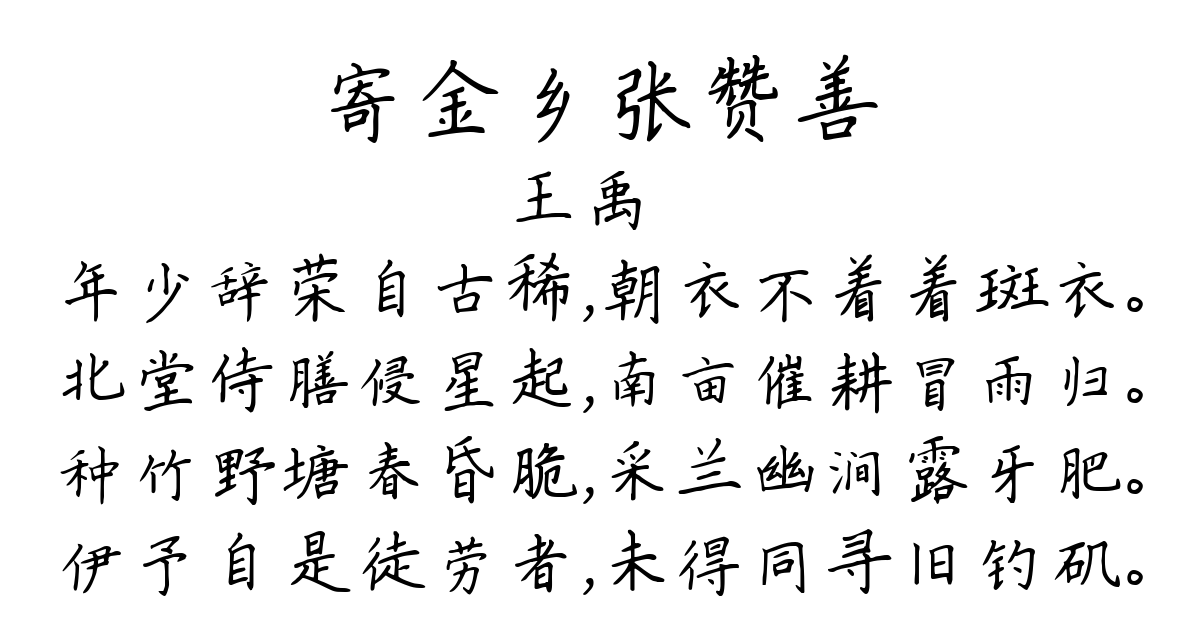 寄金乡张赞善
王禹
年少辞荣自古稀,朝衣不着着斑衣。
北堂侍膳侵星起,南亩催耕冒雨归。
种竹野塘春昏脆,采兰幽涧露牙肥。
伊予自是徒劳者,未得同寻旧钓矶。